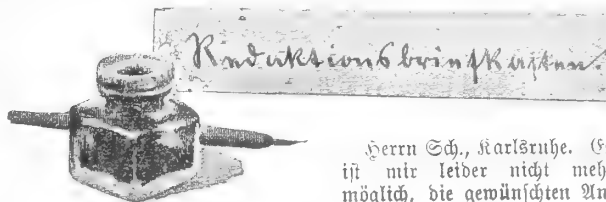 Redaktionsbriefkasten.
Herrn Sch., Karlsruhe.
ist mir leider nicht
möglich, die gewünschten